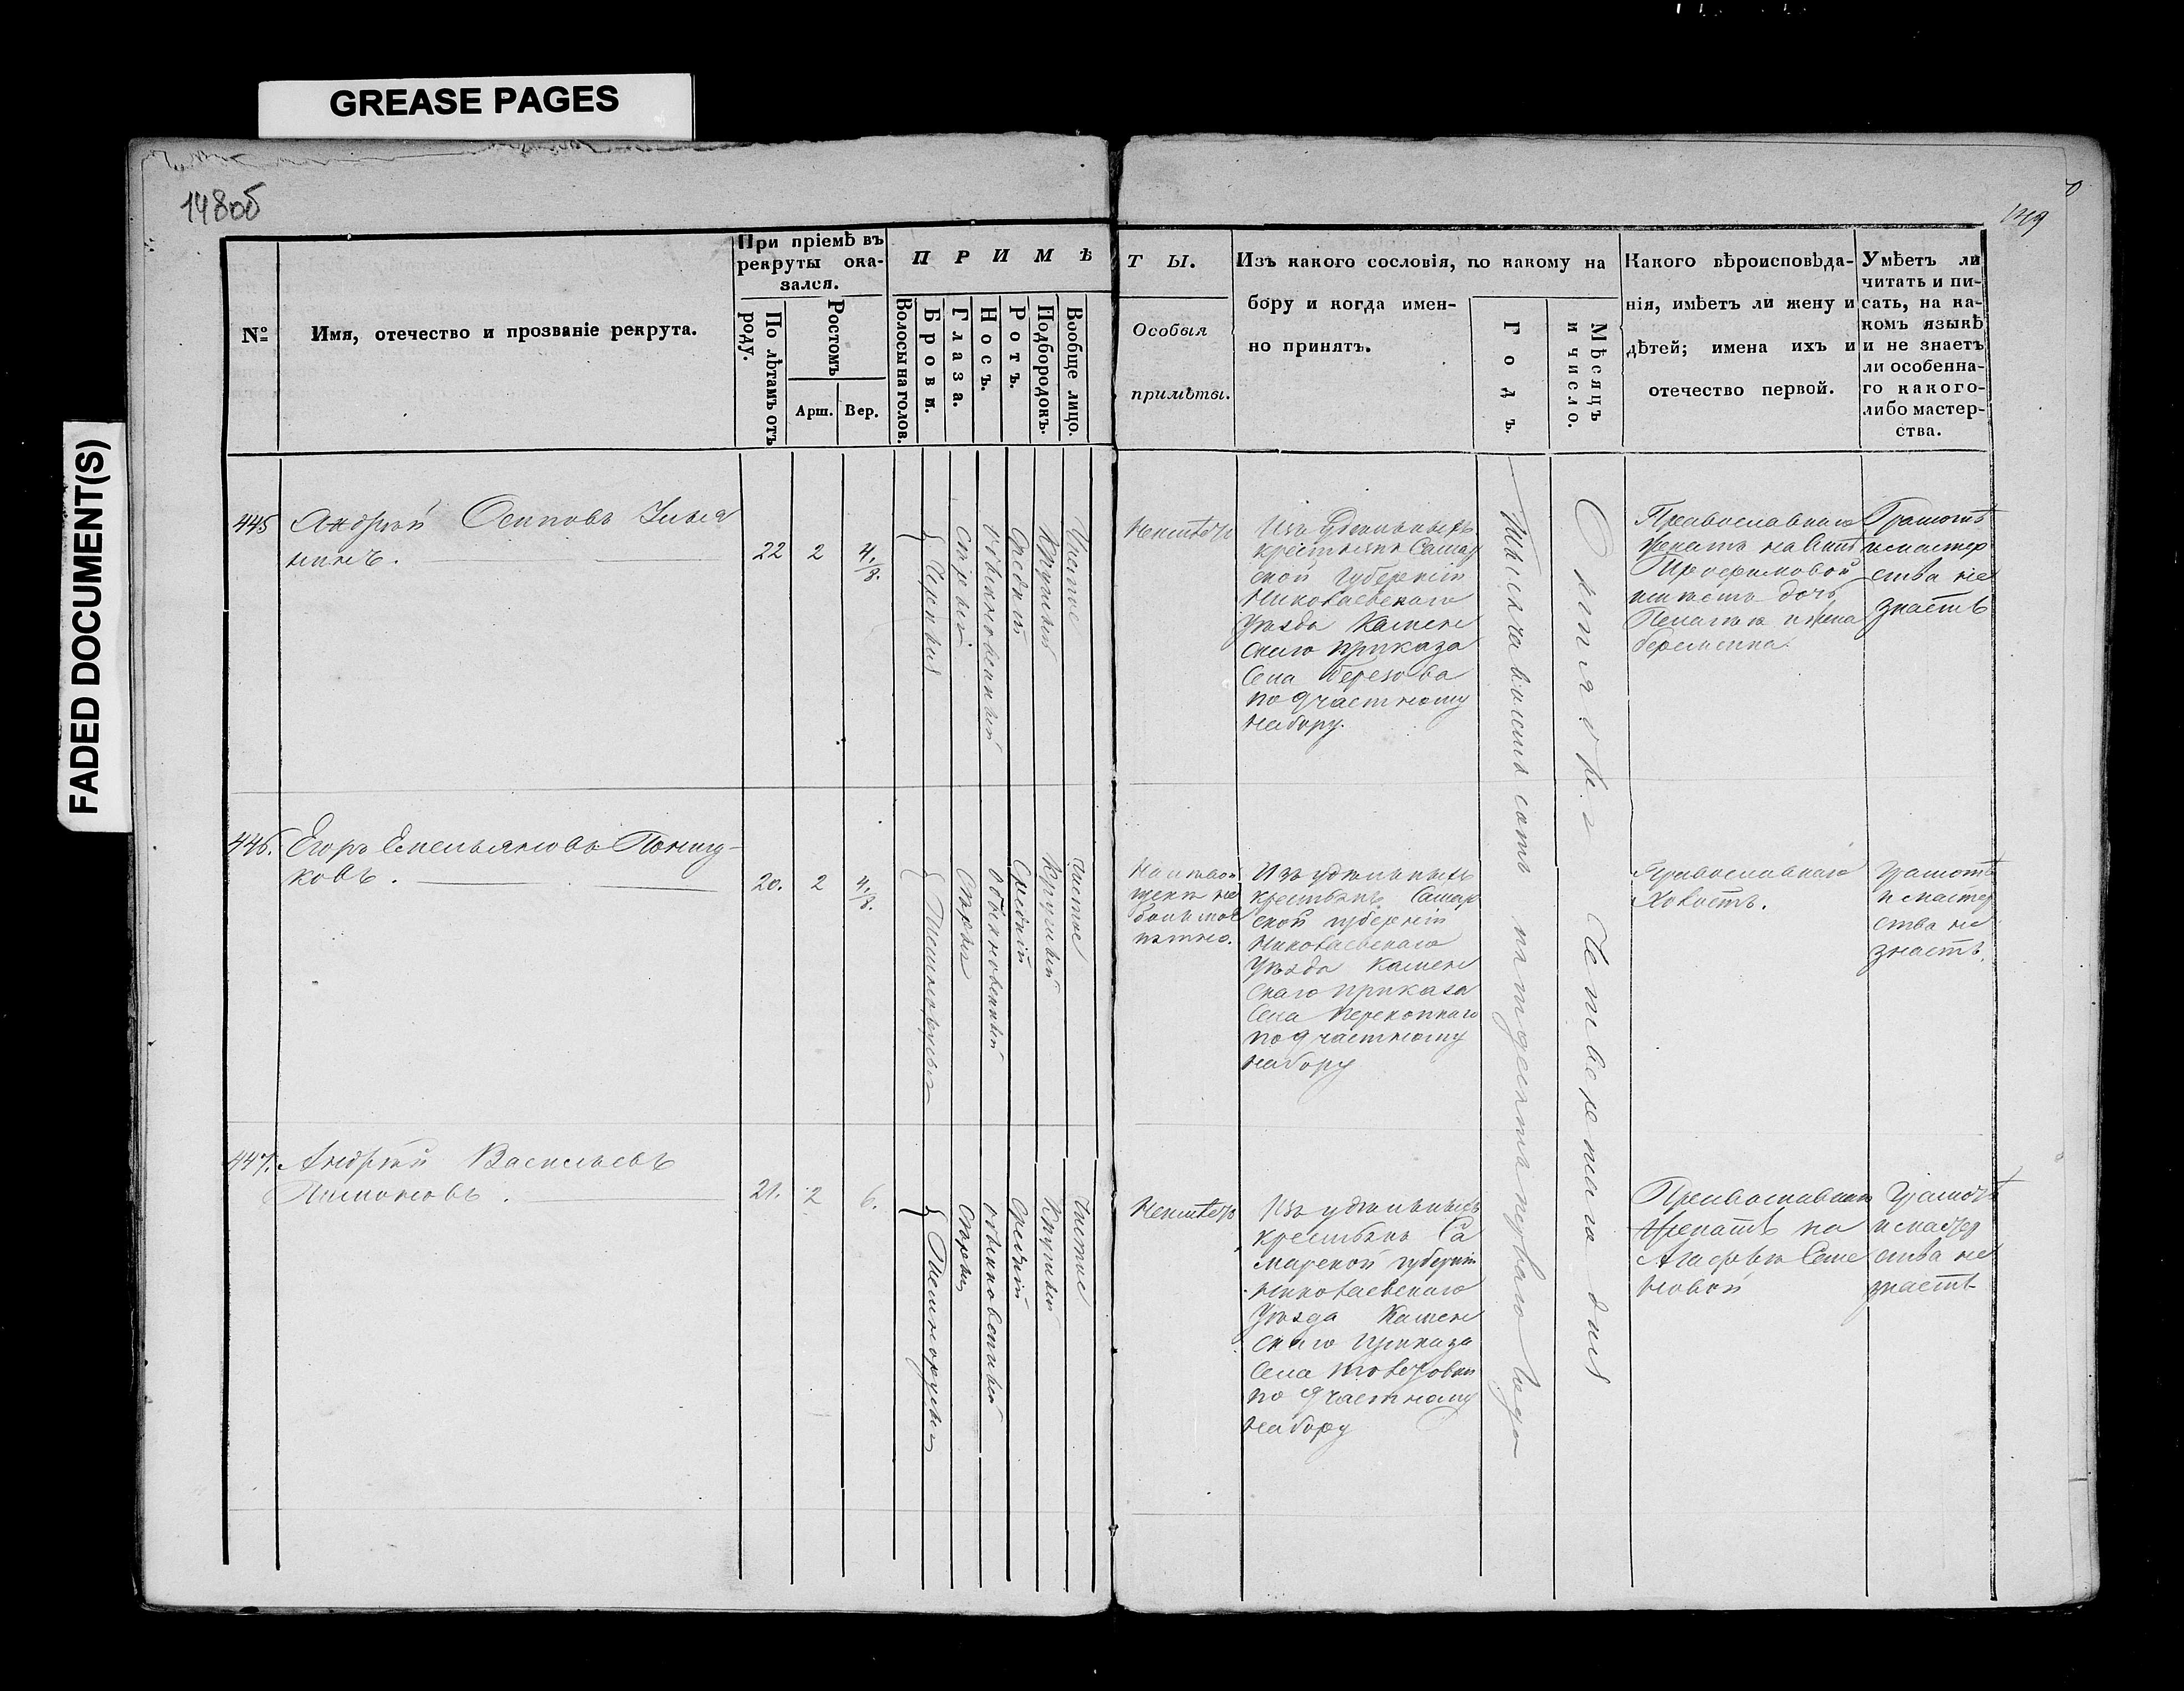 GREASE PAGES
FADED DOCUMENT(S)
148об
149
№
Имя, отечество и прозваніе рекрута.
При пріемѣ въ
рекруты ока-
зался.
По лѣтамъ отъ
роду.
Ростомъ
Арш.
Вер.
ПРИМѢ
Волосы на голов.
Брови.
Глаза.
Носъ.
Ротъ.
Подбородокъ.
Вообще лицо.
ТЫ.
Особыя
примѣты.
Изъ какого сословія, по какому на
бору и когда имен-
но принятъ.
Годъ.
Мѣсяцъ
и число.
Какого вѣроисповѣда-
нія, имѣетъ ли жену и
дѣтей; имена ихъ и
отечество первой.
Умѣетъ ли
читать и пи-
сать, на ка-
комъ языкѣ
и не знаетъ
ли особенна-
го какого-
либо мастер-
ства.
445
Андрей Осиповъ
22
2
4/8.
Сѣрые
обыкновенный
Средній
Круглый
Чистое
Неимѣетъ
Изъ удѣльныхъ
крестьянъ Самар
ской губерніи
Николаевскаго
уѣзда Камен
скаго приказа
Села Березова
по 9 частному
набору.
Тысяча восемь сотъ пятьдесятъ перваго года
Октября Четвертаго дня
Православнаго
женатъ на
имѣетъ дочь
Пелагѣю и жена
беременна.
Грамотѣ
и мастер
ства не
знаетъ
446.
Егоръ Емельяновъ
ковъ.
20.
2
4/8.
Темнорусыя
Сѣрыя
обыкновенный
Средній
Круглый
чистое
Изъ удѣльныхъ
крестьянъ Самар
ской губерніи
Николаевскаго
Уѣзда Камен
скаго приказа
Села Перекопнаго
по 9 частному
набору
Православнаго
Холостъ.
Грамотѣ
и мастер
ства не
знаетъ.
447.
Андрей Васильевъ
21.
2
6.
Темнорусыя
Сѣрыя
обыкновенный
Средній
Круглый
Чистое
Неимѣетъ
Изъ удѣльныхъ
крестьянъ Са
марской губерніи
Николаевскаго
Уѣзда Камен
скаго Приказа
Села
по 9 частному
набору
Православнаго
Женатъ на
Агафьѣ Семе
новой
Грамотѣ
и мастер
ства не
знаетъ